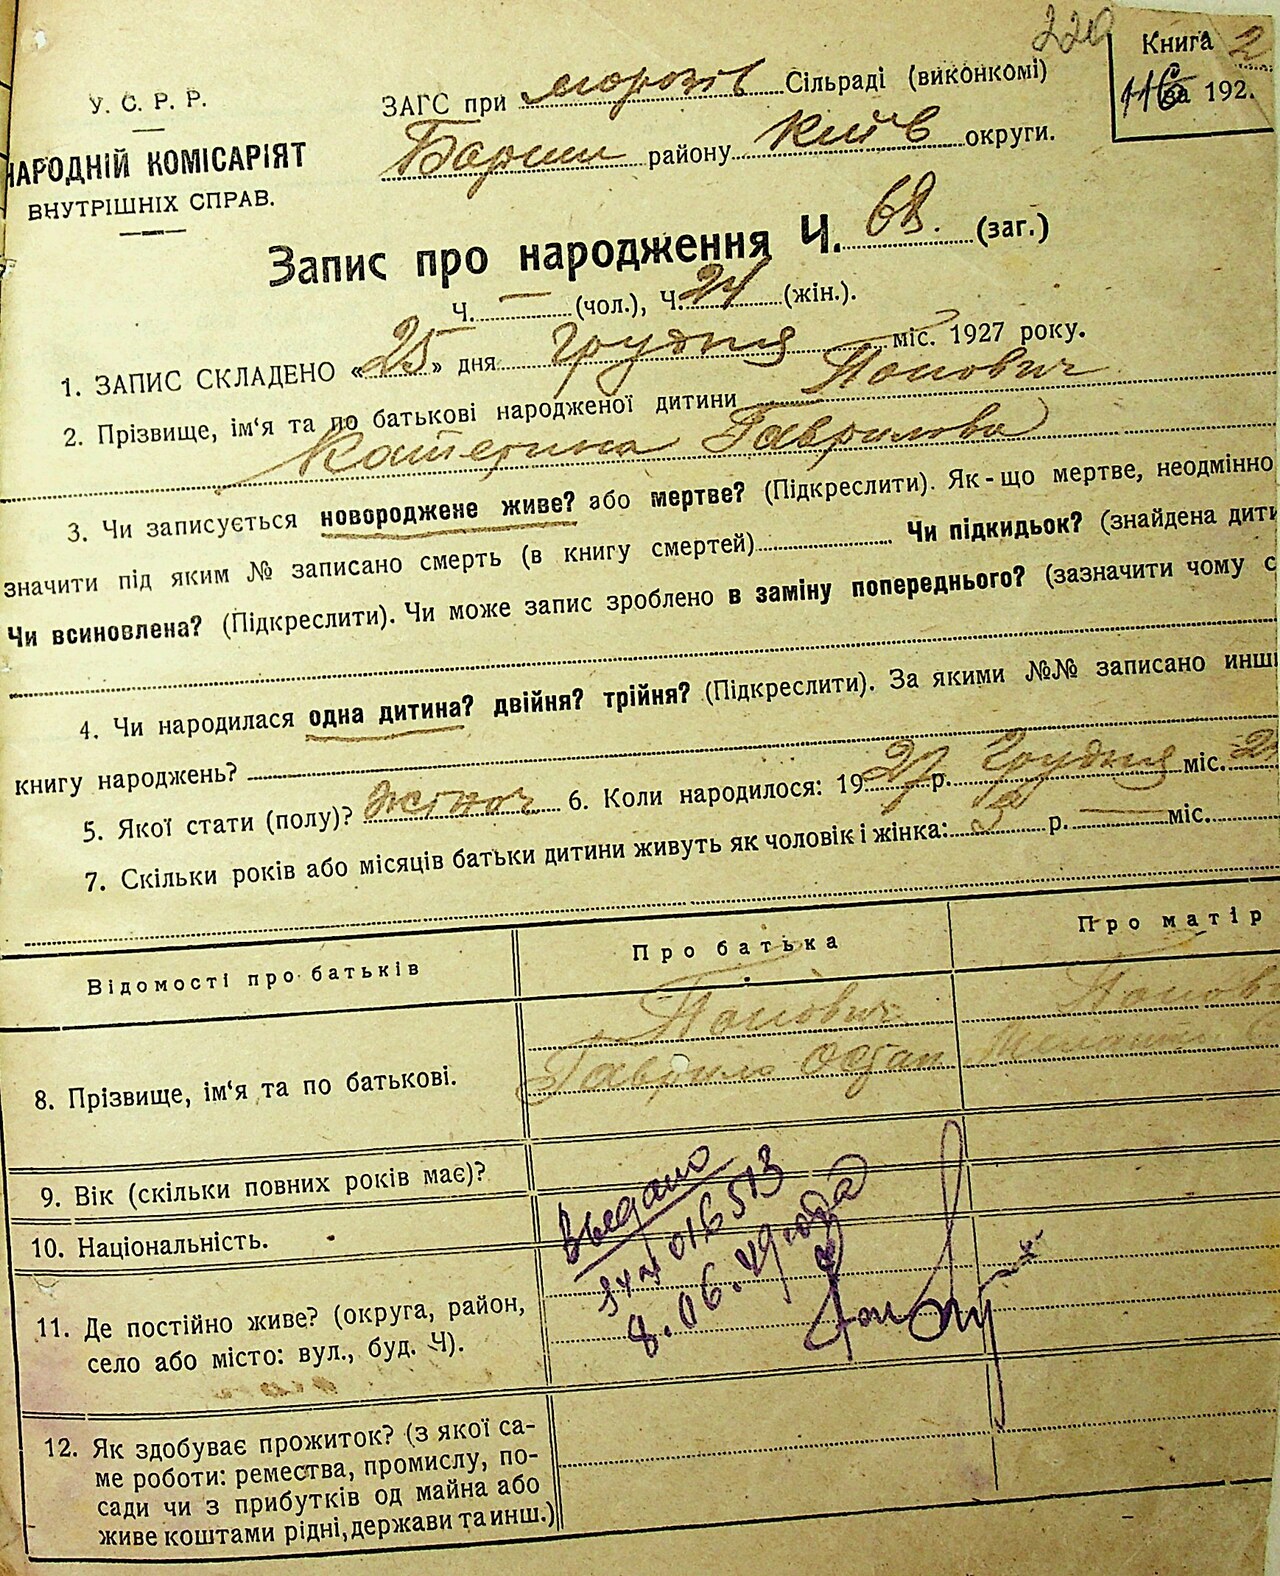 220
Книга 2
116 за 192.
У. С. Р. Р.
НАРОДНІЙ КОМІСАРІЯТ
ВНУТРІШНІХ СПРАВ.
ЗАГС при морозів Сільраді (виконкомі)
Бариш району Київ округи.
Запис про народження Ч. 68. (заг.)
Ч. — (чол.), Ч. 24 (жін.).
1. ЗАПИС СКЛАДЕНО «25» дня грудня міс. 1927 року.
2. Прізвище, ім'я та по батькові народженої дитини Попович
Катерина Гаврилова
3. Чи записується новороджене живе? або мертве? (Підкреслити). Як-що мертве, неодмінно
значити під яким № записано смерть (в книгу смертей) Чи підкидьок? (знайдена дити
Чи всиновлена? (Підкреслити). Чи може запис зроблено в заміну попереднього? (зазначити чому с
4. Чи народилася одна дитина? двійня? трійня? (Підкреслити). За якими №№ записано инши
книгу народжень?
5. Якої стати (полу)? жіноч 6. Коли народилося: 1927 р. Грудня міс. 2
7. Скільки років або місяців батьки дитини живуть як чоловік і жінка: р. — міс.
Відомості про батьків
Про батька
Про матір
8. Прізвище, ім'я та по батькові.
Попович
Гаврило Остап
Попов
9. Вік (скільки повних років має)?
10. Національність.
11. Де постійно живе? (округа, район,
село або місто: вул., буд. Ч).
016513
8.06.49 года
12. Як здобуває прожиток? (з якої са-
ме роботи: ремества, промислу, по-
сади чи з прибутків од майна або
живе коштами рідні, держави та инш.)